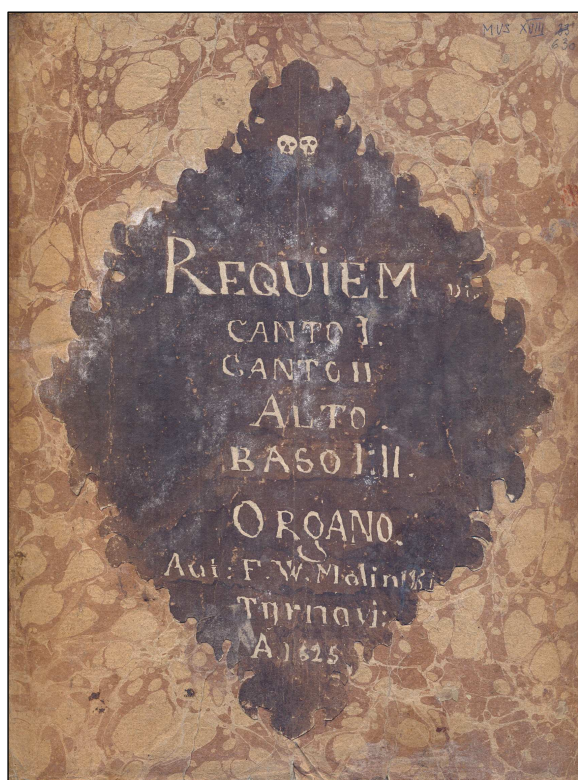 MUS XVIII
63
REQUiEM
CANTO I.
CANTO II
ALTO.
BASO I:II.
ORGANO.
Aut: F. W. Malinski
Tyrnavi:
A 1825